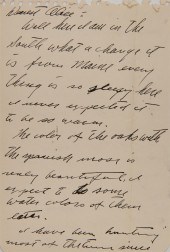 Aunt Clair:
Well here I am in the
South what a change it
is from Maine every
thing is so here
I never expected it
to be so warm.
The color of the oaks with
the spanish moss is
very beautiful, I
expect to do some
water colors of them
later.
I have been hunting
most of the time since